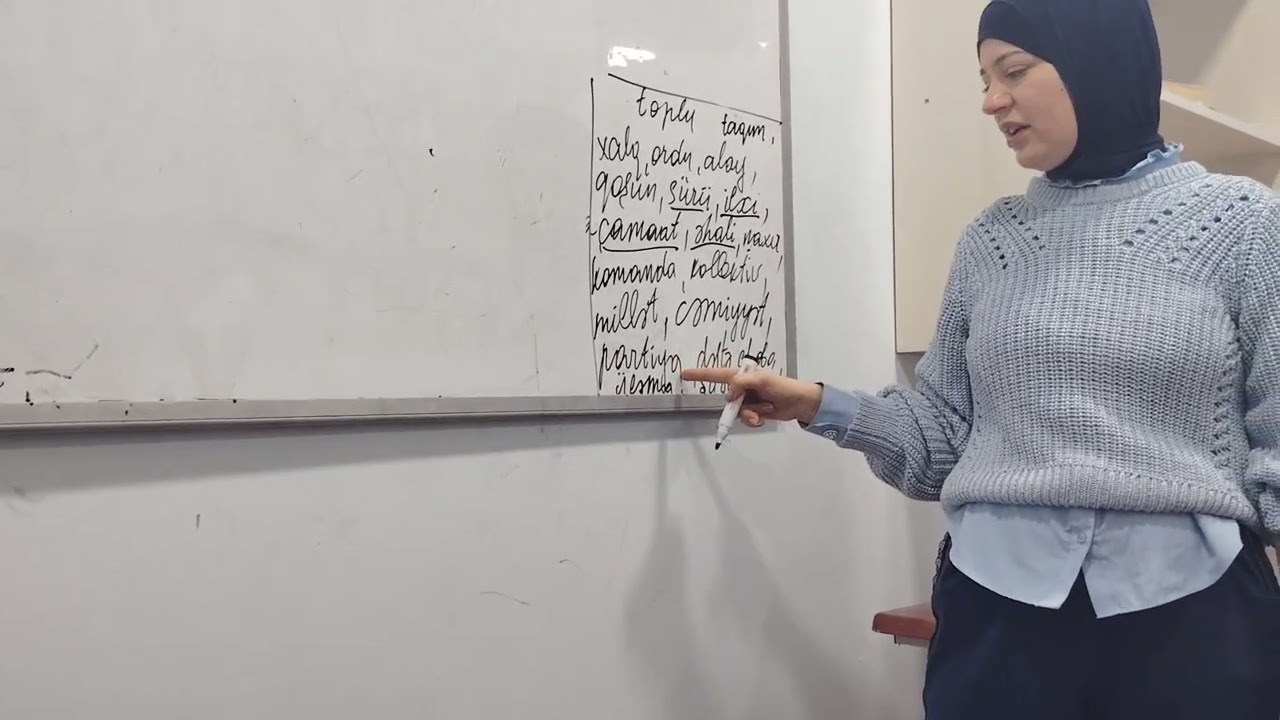 toplu taqım,
xalq, ordu, alay,
qoşun, sürü, ilxı,
camaat, əhali, naxır,
komanda, kollektiv,
millət, cəmiyyət,
partiya, dəstə,